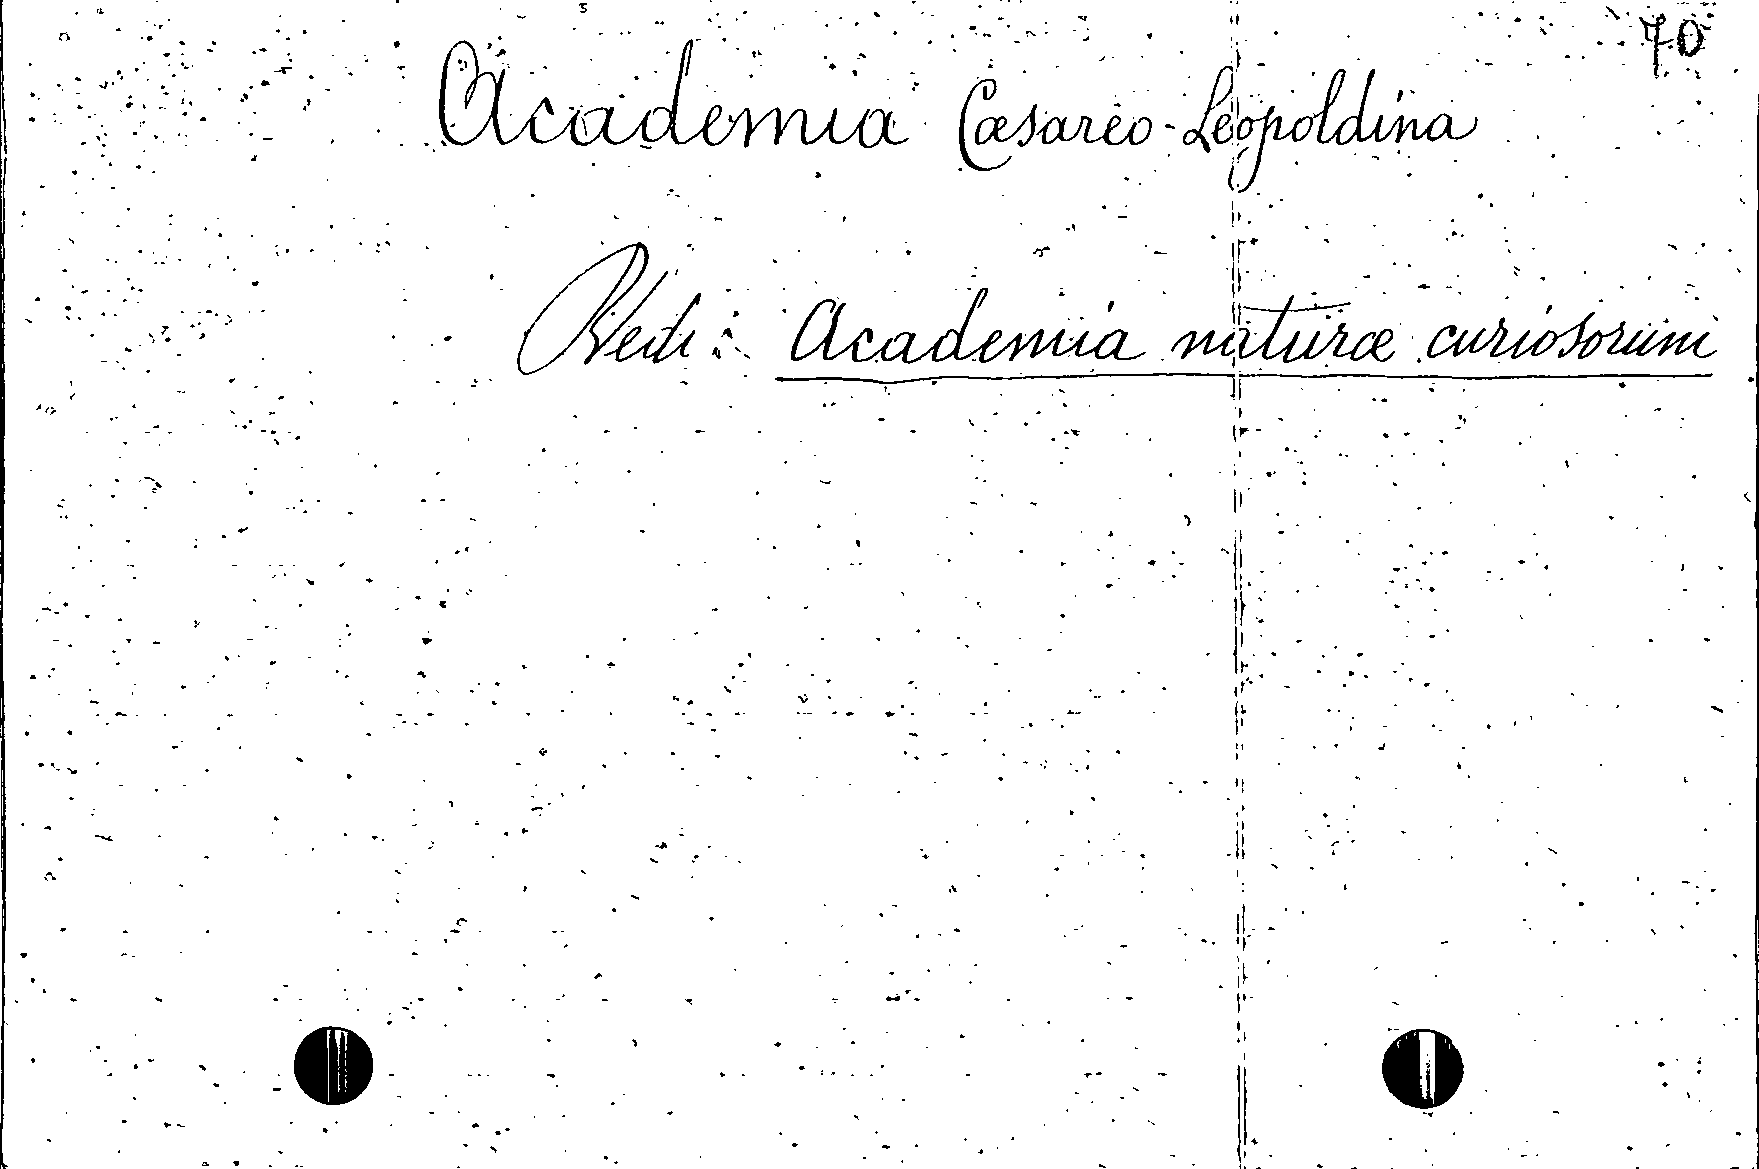 70
Academia Cæsareo-Leopoldina
Vedi: Academia naturæ curiosorum